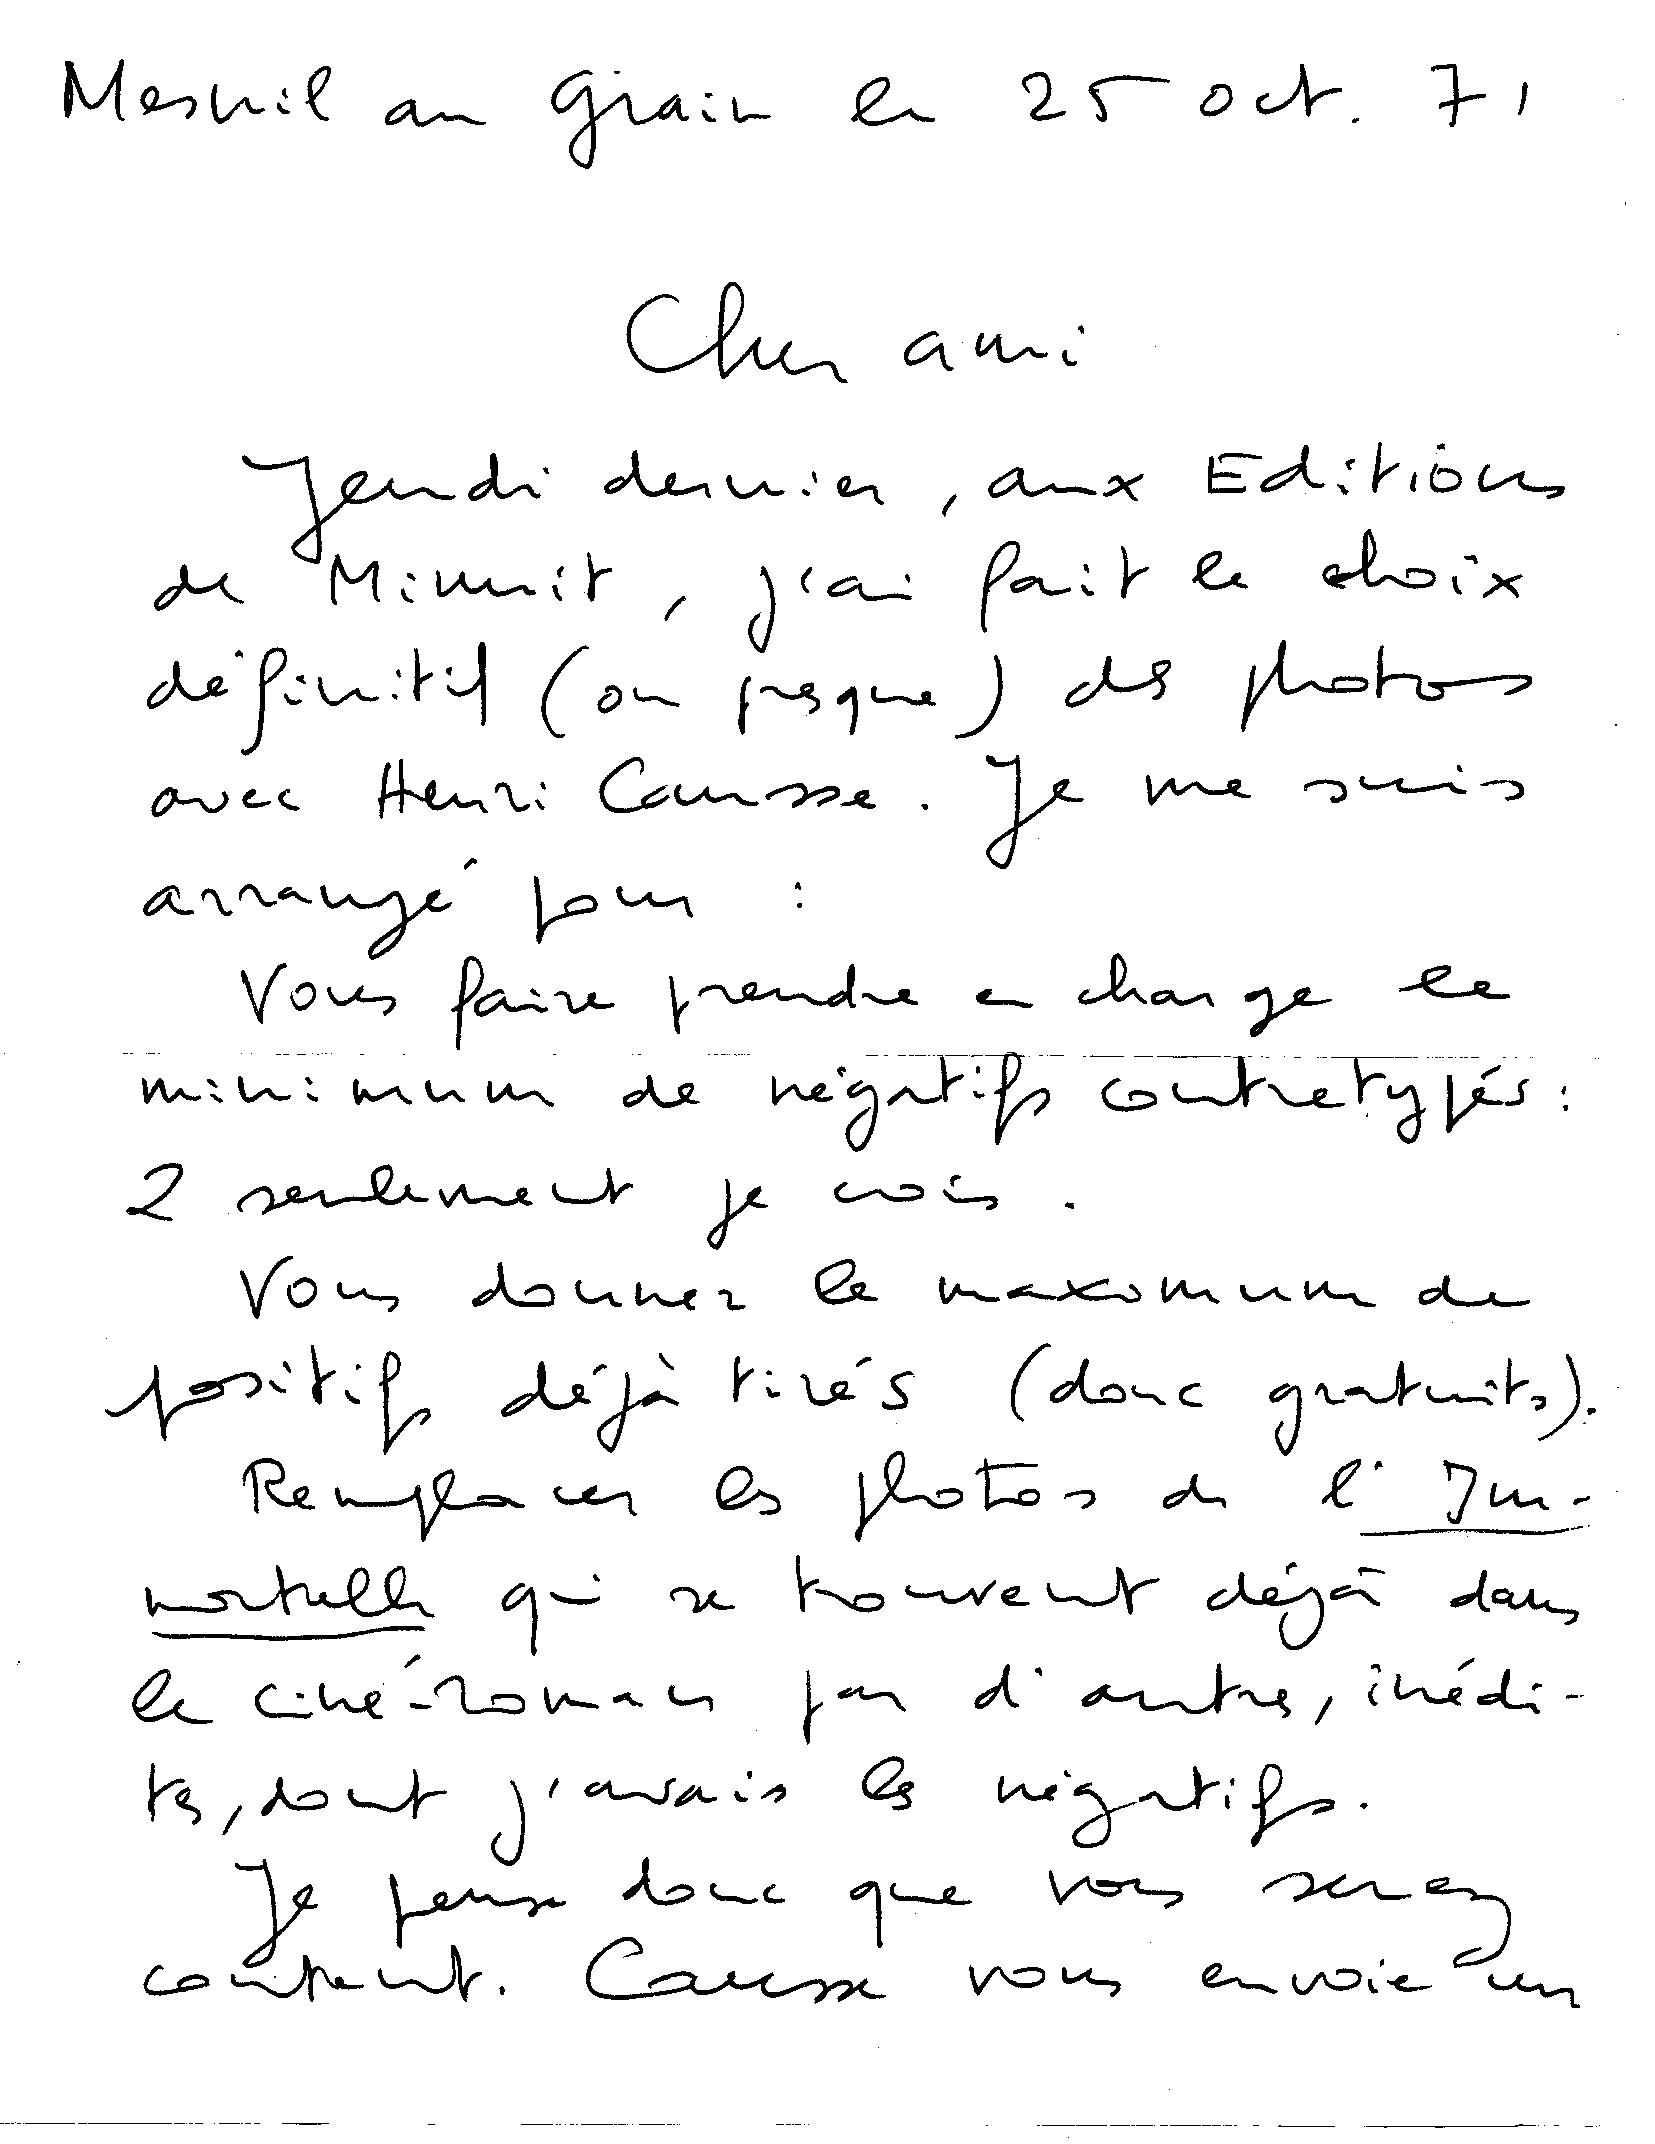 Mesnil au Grain le 25 oct. 71
Cher ami
Jeudi dernier, aux Editions
de Minuit, j'ai fait le choix
définitif (ou presque) des photos
avec Henri Causse. Je me suis
arrangé pour :
Vous faire prendre en charge le
minimum de négatifs contretypés :
2 seulement je crois.
Vous donner le maximum de
positifs déjà tirés (donc gratuits).
Remplacer les photos de l'Im-
mortelle qui se trouvent déjà dans
le ciné-roman par d'autres, inédi-
tes, dont j'avais les négatifs.
Je pense donc que vous serez
content. Causse vous envoie un